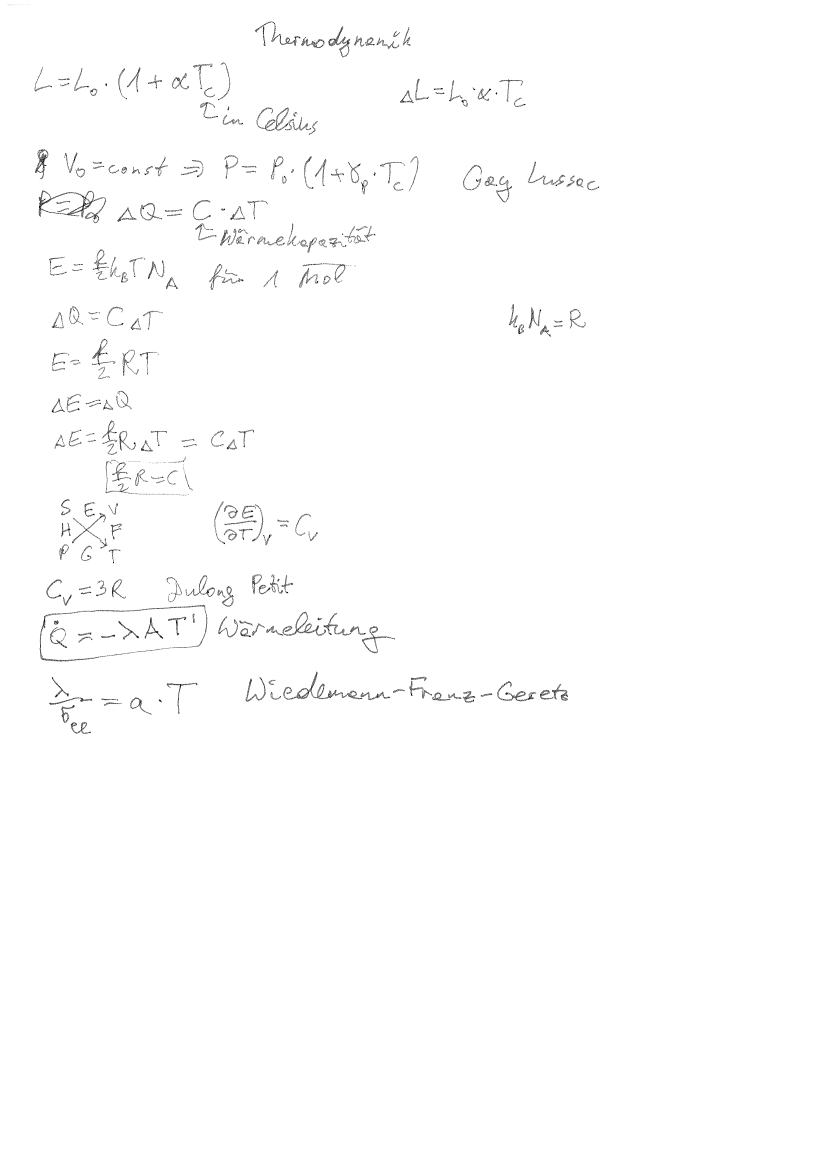 Thermodynamik
L = L₀ · (1 + α T_C)    ΔL = L₀ · α · T_C
↑ in Celsius
V₀ = const ⇒ P = P₀ · (1 + γ_p · T_C)    Gay Lussac
ΔQ = C · ΔT
↑ Wärmekapazität
E = f/2 k_B T N_A für 1 Mol
ΔQ = C ΔT    k_B N_A = R
E = f/2 RT
ΔE = ΔQ
ΔE = f/2 R ΔT = C ΔT
f/2 R = C
S E V
H F    (∂E/∂T)_V = C_V
P G T
C_V = 3R Dulong Petit
Q̇ = -λ A T' Wärmeleitung
λ/σ_el = a · T    Wiedemann-Franz-Gesetz